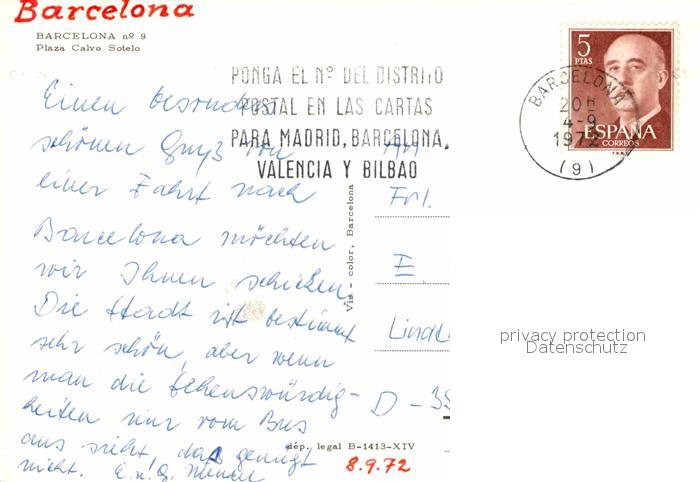 Barcelona
BARCELONA nº 9
Plaza Calvo Sotelo
PONGA EL Nº DEL DISTRITO
POSTAL EN LAS CARTAS
PARA MADRID, BARCELONA,
VALENCIA Y BILBAO
5
PTAS
ESPAÑA
CORREOS
BARCELONA
20H
4-9
1972
(9)
Einen besonders
schönen Gruß von
einer Fahrt nach
Barcelona möchten
wir Ihnen schicken.
Die Stadt ist bestimmt
sehr schön, aber wenn
man die Sehenswürdig-
keiten nur vom Bus
aus sieht, das genügt
nicht.
Vis-color, Barcelona
Frl.
E
D-
dép. legal B-1413-XIV
8.9.72
privacy protection
Datenschutz